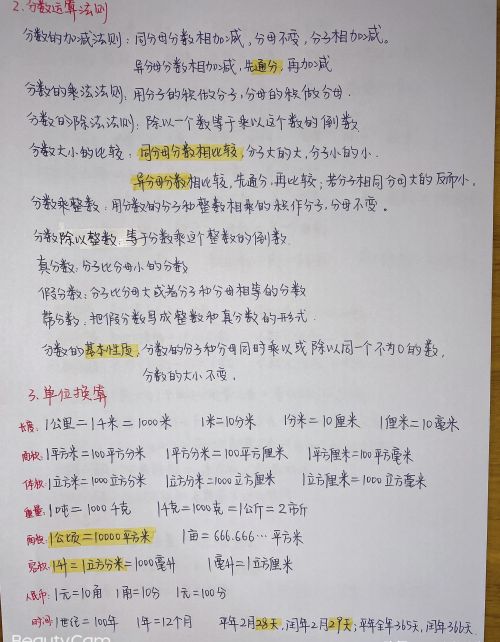 2.分数运算法则
分数的加减法则：同分母分数相加减，分母不变，分子相加减。
异分母分数相加减，先通分，再加减
分数的乘法法则：用分子的积做分子，分母的积做分母．
分数的除法法则：除以一个数等于乘以这个数的倒数
分数大小的比较：同分母分数相比较，分子大的大，分子小的小．
异分母分数相比较，先通分，再比较；若分子相同分母大的反而小．
分数乘整数：用分数的分子和整数相乘的积作分子，分母不变。
分数除以整数：等于分数乘这个整数的倒数
真分数：分子比分母小的分数
假分数：分子比分母大或者分子和分母相等的分数
带分数：把假分数写成整数和真分数的形式．
分数的基本性质：分数的分子和分母同时乘以或除以同一个不为0的数，
分数的大小不变．
3.单位换算
长度：1公里＝1千米＝1000米 1米＝10分米 1分米＝10厘米 1厘米＝10毫米
面积：1平方米＝100平方分米 1平方分米＝100平方厘米 1平方厘米＝100平方毫米
体积：1立方米＝1000立方分米 1立方分米＝1000立方厘米 1立方厘米＝1000立方毫米
重量：1吨＝1000千克 1千克＝1000克＝1公斤＝2市斤
面积：1公顷＝10000平方米 1亩＝666.666…平方米
容积：1升＝1立方分米＝1000毫升 1毫升＝1立方厘米
人民币：1元＝10角 1角＝10分 1元＝100分
时间：1世纪＝100年 1年＝12个月 平年2月28天，闰年2月29天；平年全年365天，闰年366天
BeautyCam